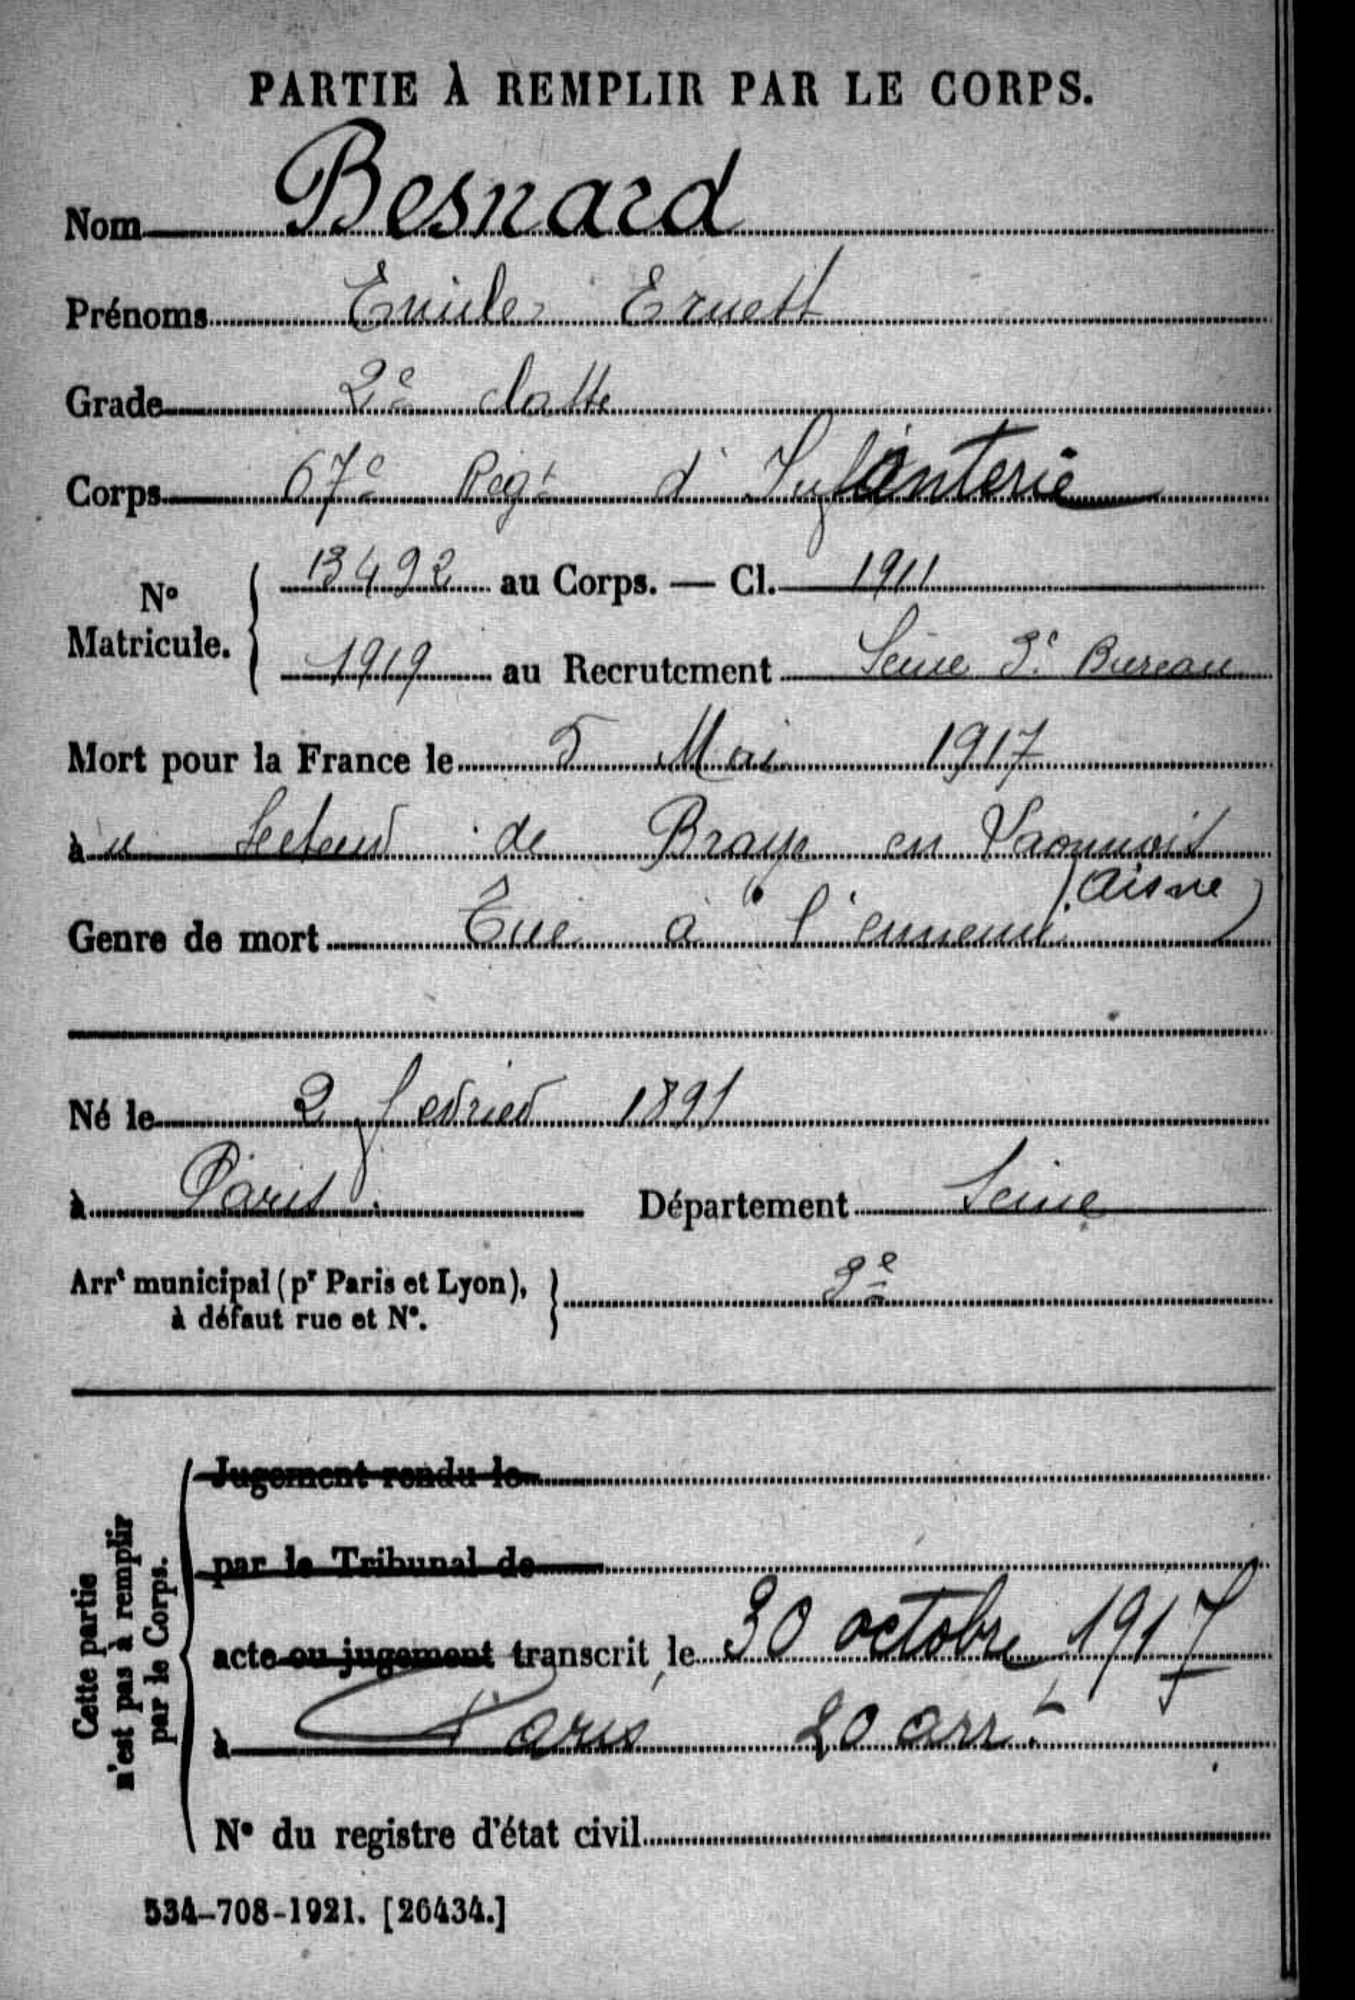 PARTIE À REMPLIR PAR LE CORPS.
Nom Besnard
Prénoms Emile Ernest
Grade 2e classe
Corps 67e Régt d'Infanterie
No Matricule. 13492 au Corps. — Cl. 1911
1919 au Recrutement Seine 3e Bureau
Mort pour la France le 5 Mai 1917
au Secteur de Braye en Laonnois
(Aisne)
Genre de mort Tué à l'ennemi
Né le 2 février 1891
à Paris Département Seine
Arrt municipal (pr Paris et Lyon), à défaut rue et No.
Cette partie n'est pas à remplir par le Corps.
Jugement rendu le
par le Tribunal de
acte ou jugement transcrit le 30 octobre 1917
à Paris 20 arrt
No du registre d'état civil
534-708-1921. [26434.]